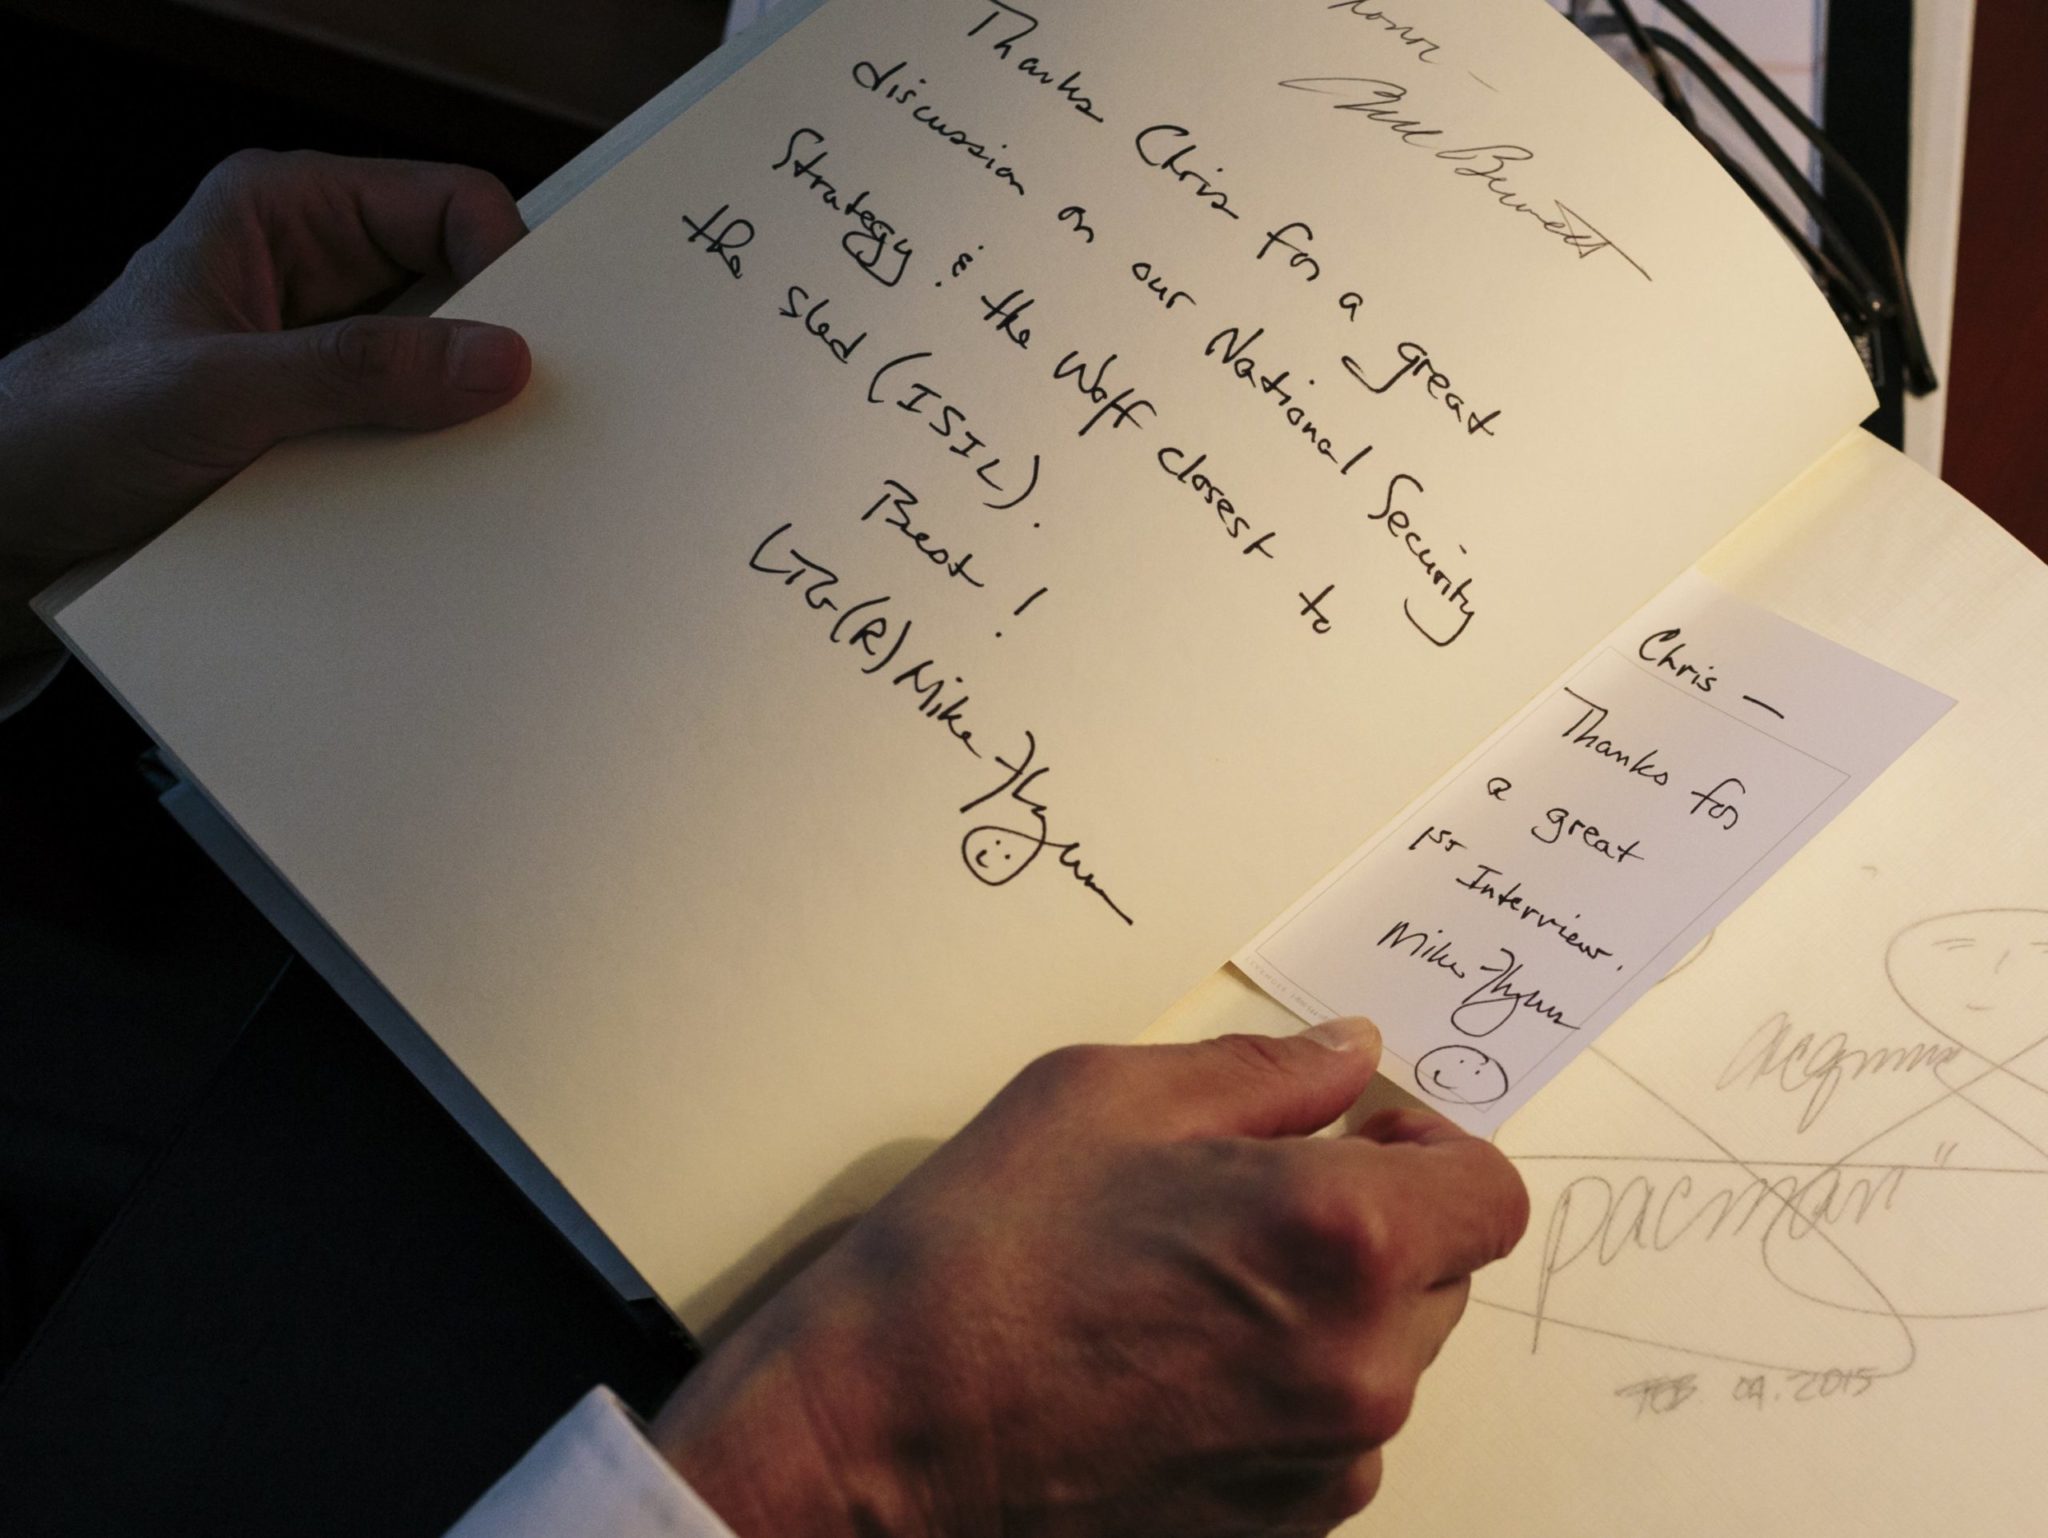 Bennett
Thanks Chris for a great
discussion on our National Security
Strategy & the Wolf closest to
the sled (ISIL).
Best!
LTG(R) Mike Flynn
Chris —
Thanks for
a great
1st Interview.
Mike Flynn
Pacman"
FEB 04.2015